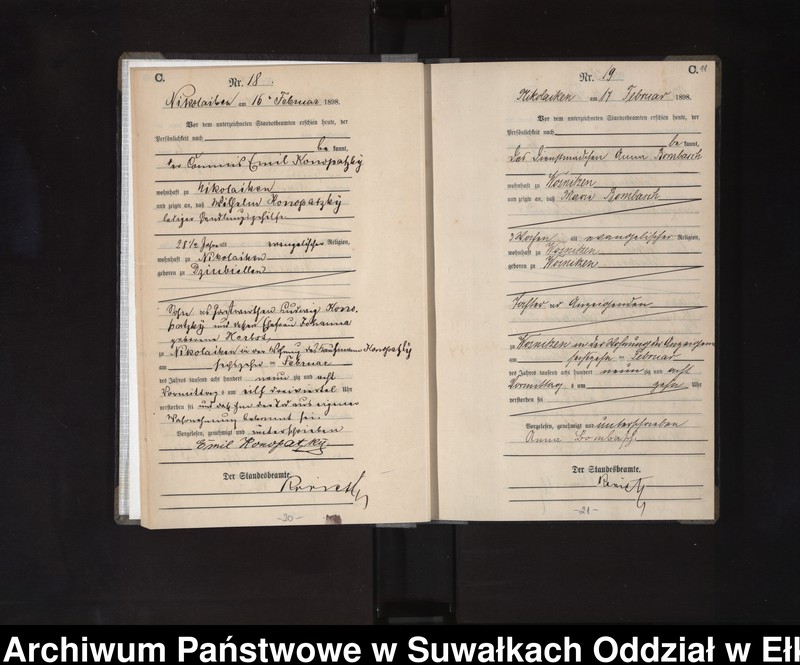 C.
Nr. 18.
Nikolaiken am 16ⁿ Februar 1898.
Vor dem unterzeichneten Standesbeamten erschien heute, der
Persönlichkeit nach
be kannt,
der Commis Emil Konopatzky
wohnhaft zu Nikolaiken
und zeigte an, daß Wilhelm Konopatzky
lediger Handlungsgehilfe
28 1/2 Jahre alt evangelischer Religion,
wohnhaft zu Nikolaiken
geboren zu Dziubiellen
Sohn des Gastwirthen Ludwig Kono-
patzky und dessen Ehefrau Johanna
geborene Herbst
zu Nikolaiken in der Wohnung des Kaufmann Konopatzky
am sechszehn ten Februar
des Jahres tausend acht hundert neun zig und acht
Vormittags um eilf dreiviertel Uhr
verstorben sei und daß ihm der Tod aus eigener
Wahrnehmung bekannt sei.
Vorgelesen, genehmigt und unterschrieben
Emil Konopatzky
Der Standesbeamte.
-20-
C. 11
Nr. 19
Nikolaiken am 17 Februar 1898.
Vor dem unterzeichneten Standesbeamten erschien heute, der
Persönlichkeit nach
be kannt,
das Dienstmädchen Anna Bombasch
wohnhaft zu Woznitzen
und zeigte an, daß Marie Bombasch
3 Wochen alt evangelischer Religion,
wohnhaft zu Woznitzen
geboren zu Woznitzen
Tochter der Anzeigenden
zu Woznitzen in der Wohnung der Anzeigenden
am sechszehn ten Februar
des Jahres tausend acht hundert neun zig und acht
Vormittags um zehn Uhr
verstorben sei
Vorgelesen, genehmigt und unterschrieben
Anna Bombasch
Der Standesbeamte.
-21-
Archiwum Państwowe w Suwałkach Oddział w Ełk